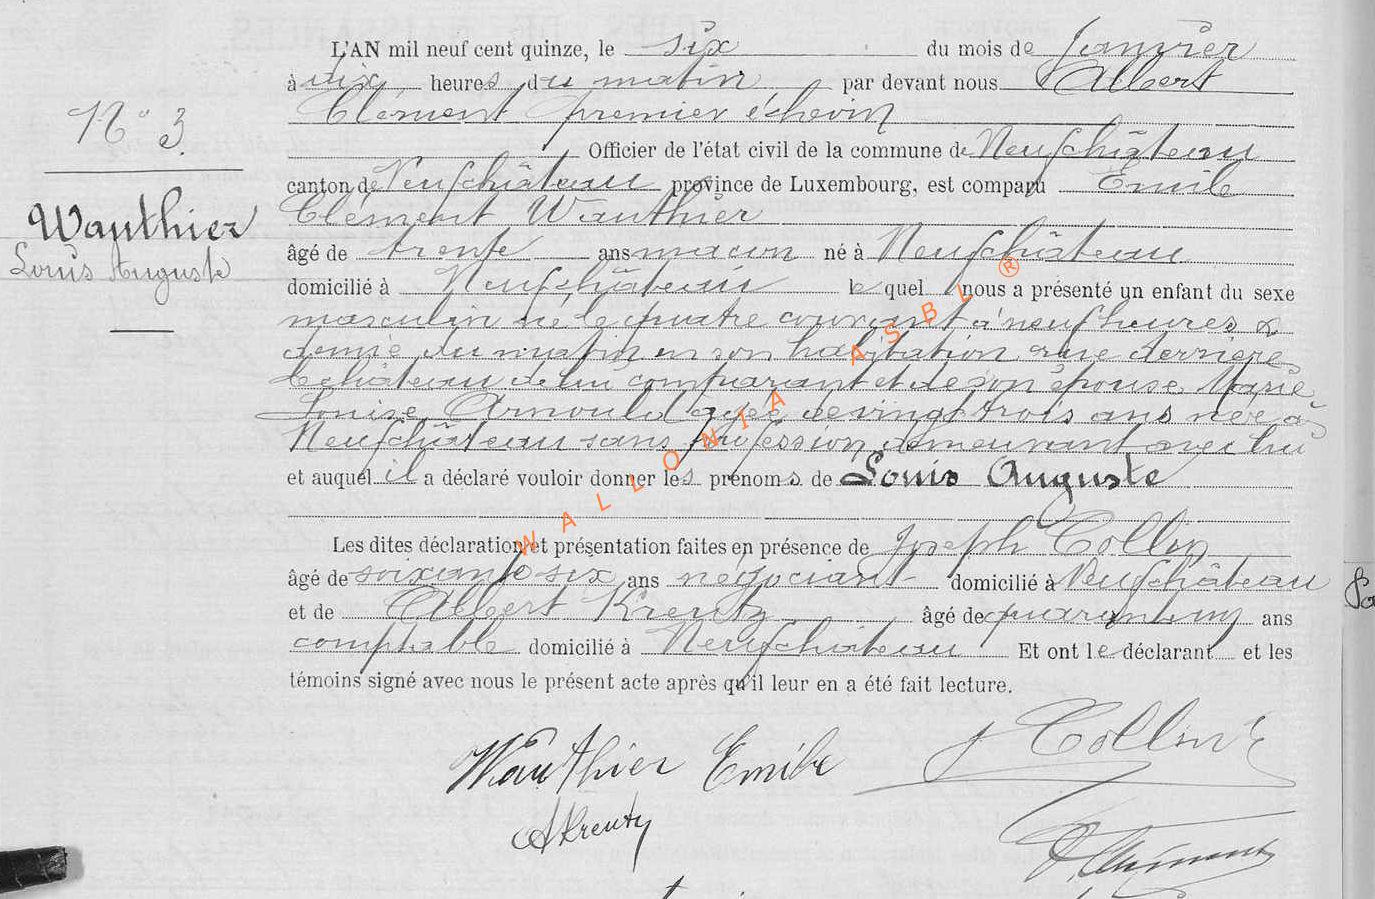 N° 3.
Wauthier
Louis Auguste
L'AN mil neuf cent quinze, le six du mois de Janvier
à dix heures du matin, par devant nous Albert
Clément premier échevin
Officier de l'état civil de la commune de Neufchâteau
canton de Neufchâteau province de Luxembourg, est comparu Emile
Clément Wauthier
âgé de trente ans maçon né à Neufchâteau
domicilié à Neufchâteau lequel nous a présenté un enfant du sexe
masculin né le quatre courant à neuf heures &
demie du matin en son habitation rue derrière
le château de lui comparant et de son épouse Marie
Louise Arnould agée de vingt trois ans née à
Neufchâteau sans profession demeurant avec lui
et auquel il a déclaré vouloir donner les prénoms de Louis Auguste
Les dites déclaration et présentation faites en présence de Joseph Collin
âgé de soixante six ans négociant domicilié à Neufchâteau
et de Albert Krentz âgé de quarante un ans
comptable domicilié à Neufchâteau Et ont le déclarant et les
témoins signé avec nous le présent acte après qu'il leur en a été fait lecture.
Wauthier Emile J Collin
AKrentz
A. Clément
WALLONIA ASBL ®